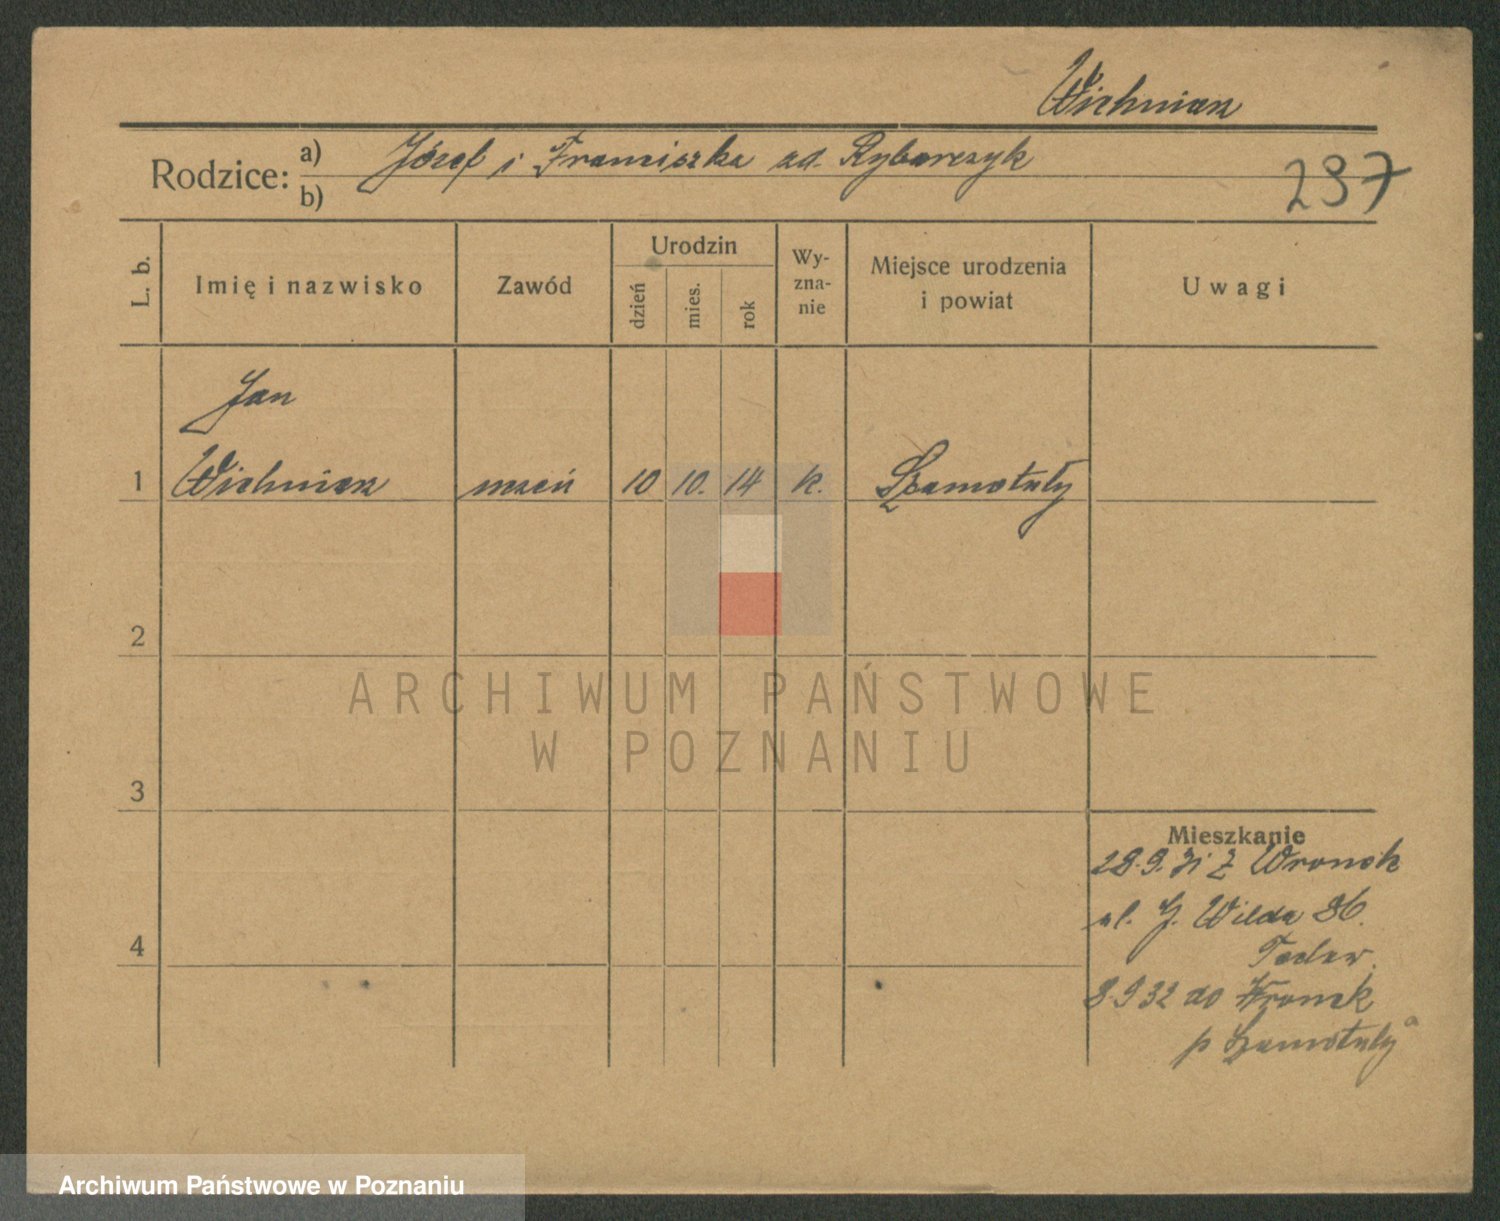 Wichniarz
Rodzice: a) Józef i Franciszka zd. Rybarczyk
b)
297
L. b.
Imię i nazwisko
Zawód
Urodzin
dzień
mies.
rok
Wy-
zna-
nie
Miejsce urodzenia
i powiat
Uwagi
Jan
1 Wichniarz uczeń 10 10. 14 k. Szamotuły
2
3
4
Mieszkanie
28.9.31 z Wronek
ul. G. Wilda 86.
8.9 32 do Wronek
p Szamotuły
ARCHIWUM PAŃSTWOWE
W POZNANIU
Archiwum Państwowe w Poznaniu